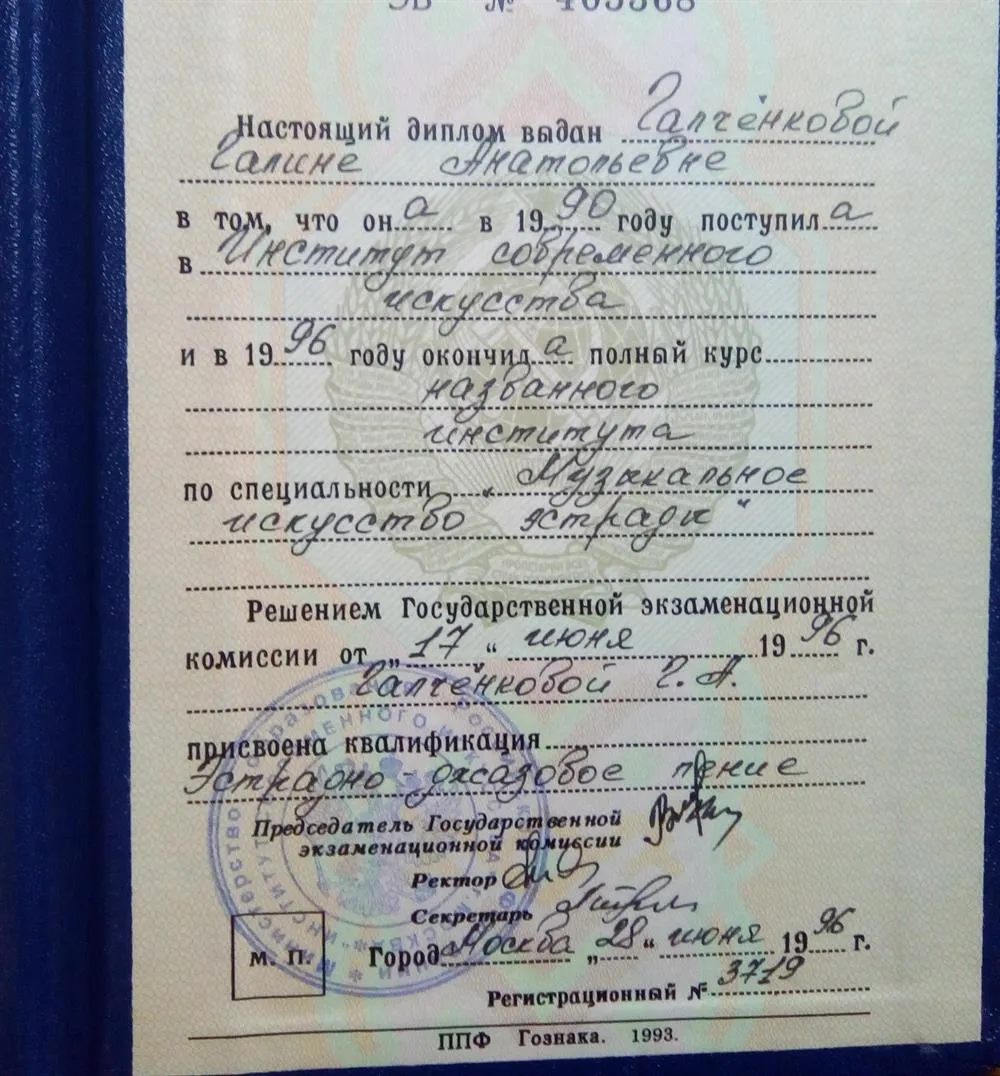 ЭВ № 405568
Настоящий диплом выдан Галчёнковой
Галине Анатольевне
в том, что она в 1990 году поступила
в Институт современного
искусства
и в 1996 году окончила полный курс
названного
института
по специальности „Музыкальное
искусство эстрады“
ПРОЛЕТАРИИ ВСЕХ
Решением Государственной экзаменационной
комиссии от „17“ июня 1996 г.
Галчёнковой Г. А.
присвоена квалификация
Эстрадно-джазовое пение
Председатель Государственной
экзаменационной комиссии
Ректор
Секретарь
Город Москва „28“ июня 1996 г.
м. п.
Регистрационный № 3719
ППФ Гознака. 1993.